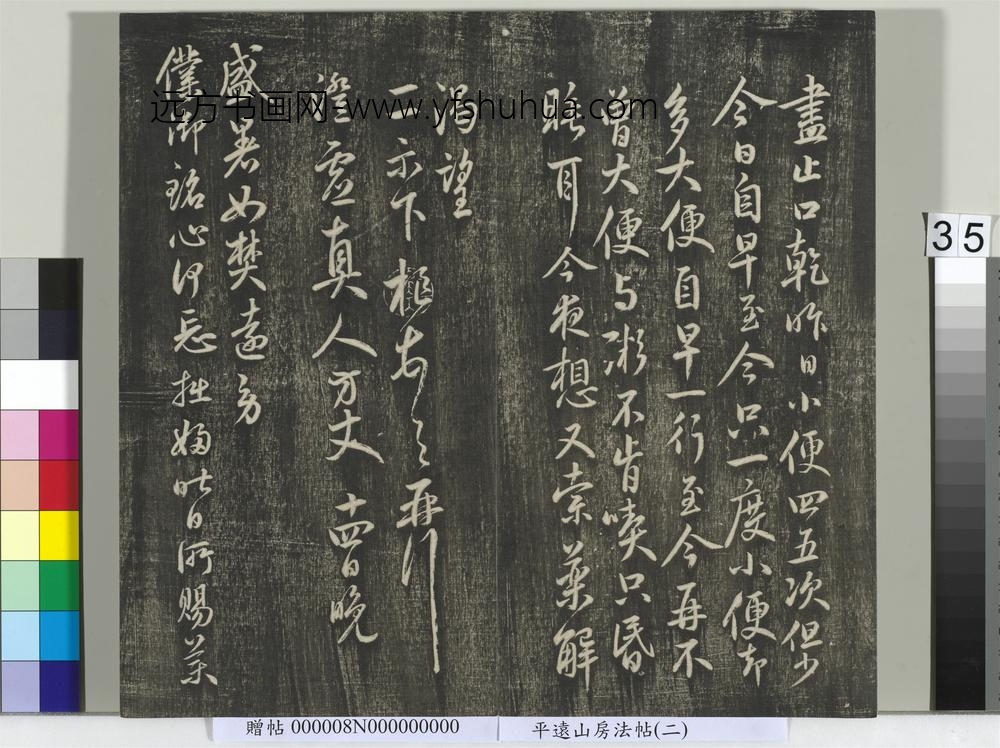 盡止口乾昨日小便四五次但少
今日自早至今只一度小便却
多大便自早一行至今再不
曾大便与粥不肯喫只昏
睡耳今夜想又索藥解
渴望
一示下
再行
證虛真人方丈 十四日晚
盛暑如焚遠方
僕御銘心何忘拙婦昨日所賜藥
远方书画网-www.yfshuhua.com
35
贈帖 000008N000000000
平遠山房法帖(二)